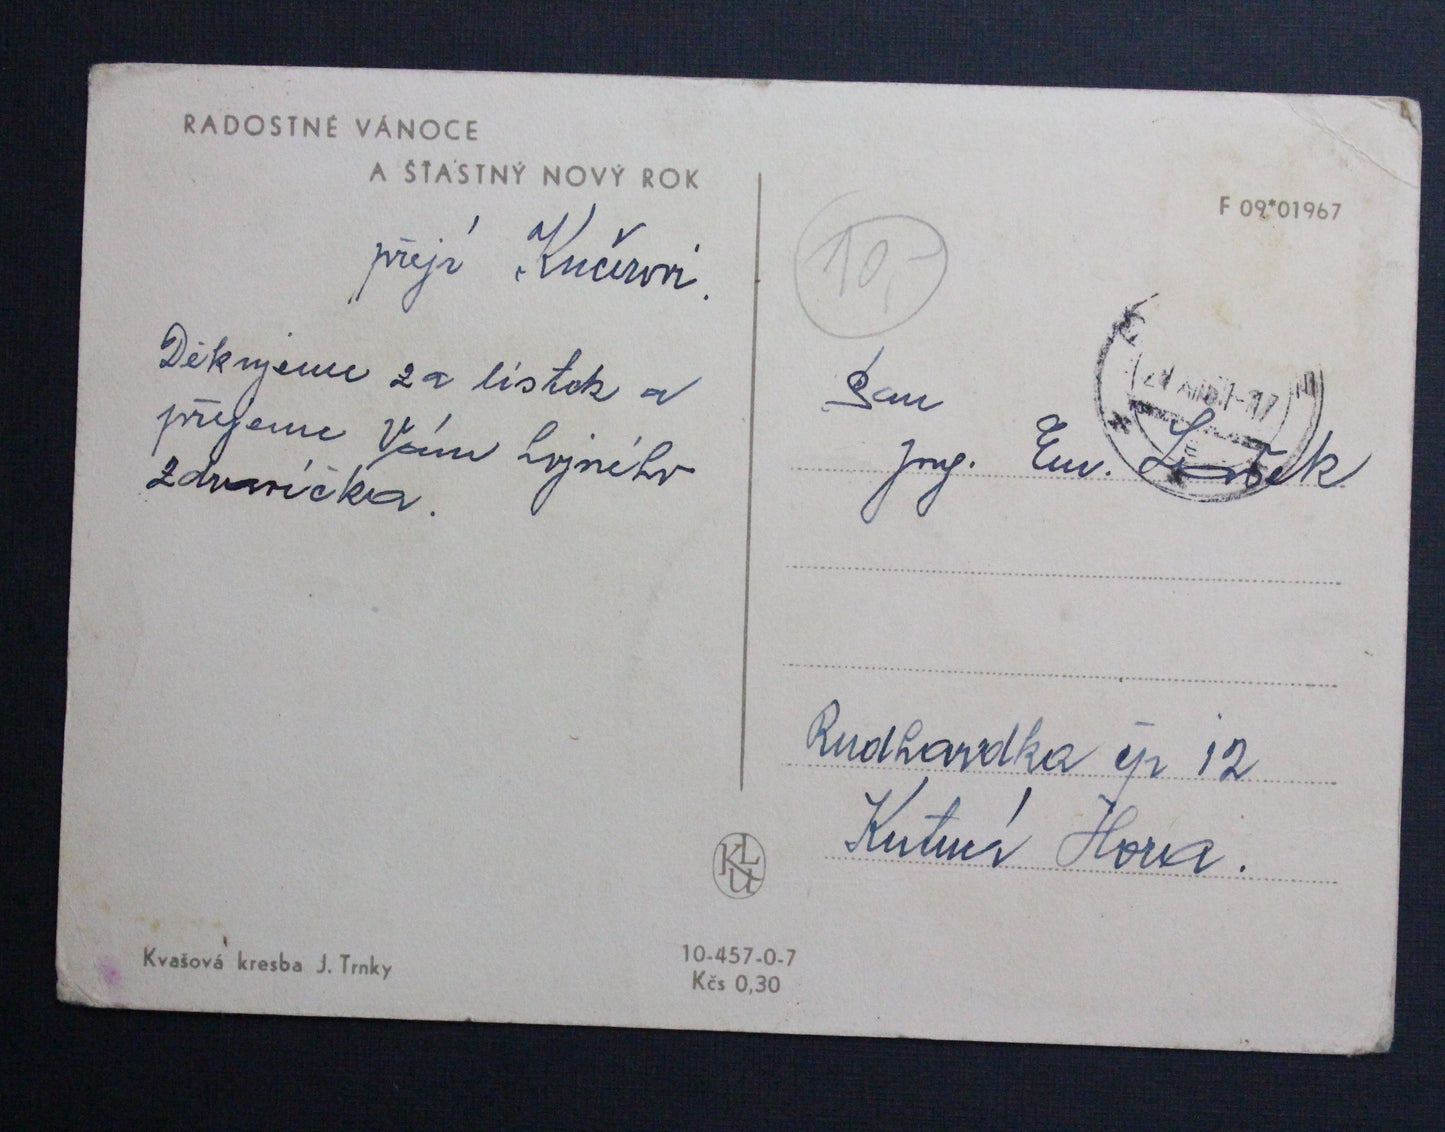 RADOSTNÉ VÁNOCE
A ŠŤASTNÝ NOVÝ ROK
přejí Kučerovi.
Děkujeme za lístek a
přejeme Vám hojného
zdravíčka.
F 09*01967
10,-
Pan
Ing. Em.
Rudhardka čp 12
Kutná Hora.
KLU
Kvašová kresba J. Trnky
10-457-0-7
Kčs 0,30